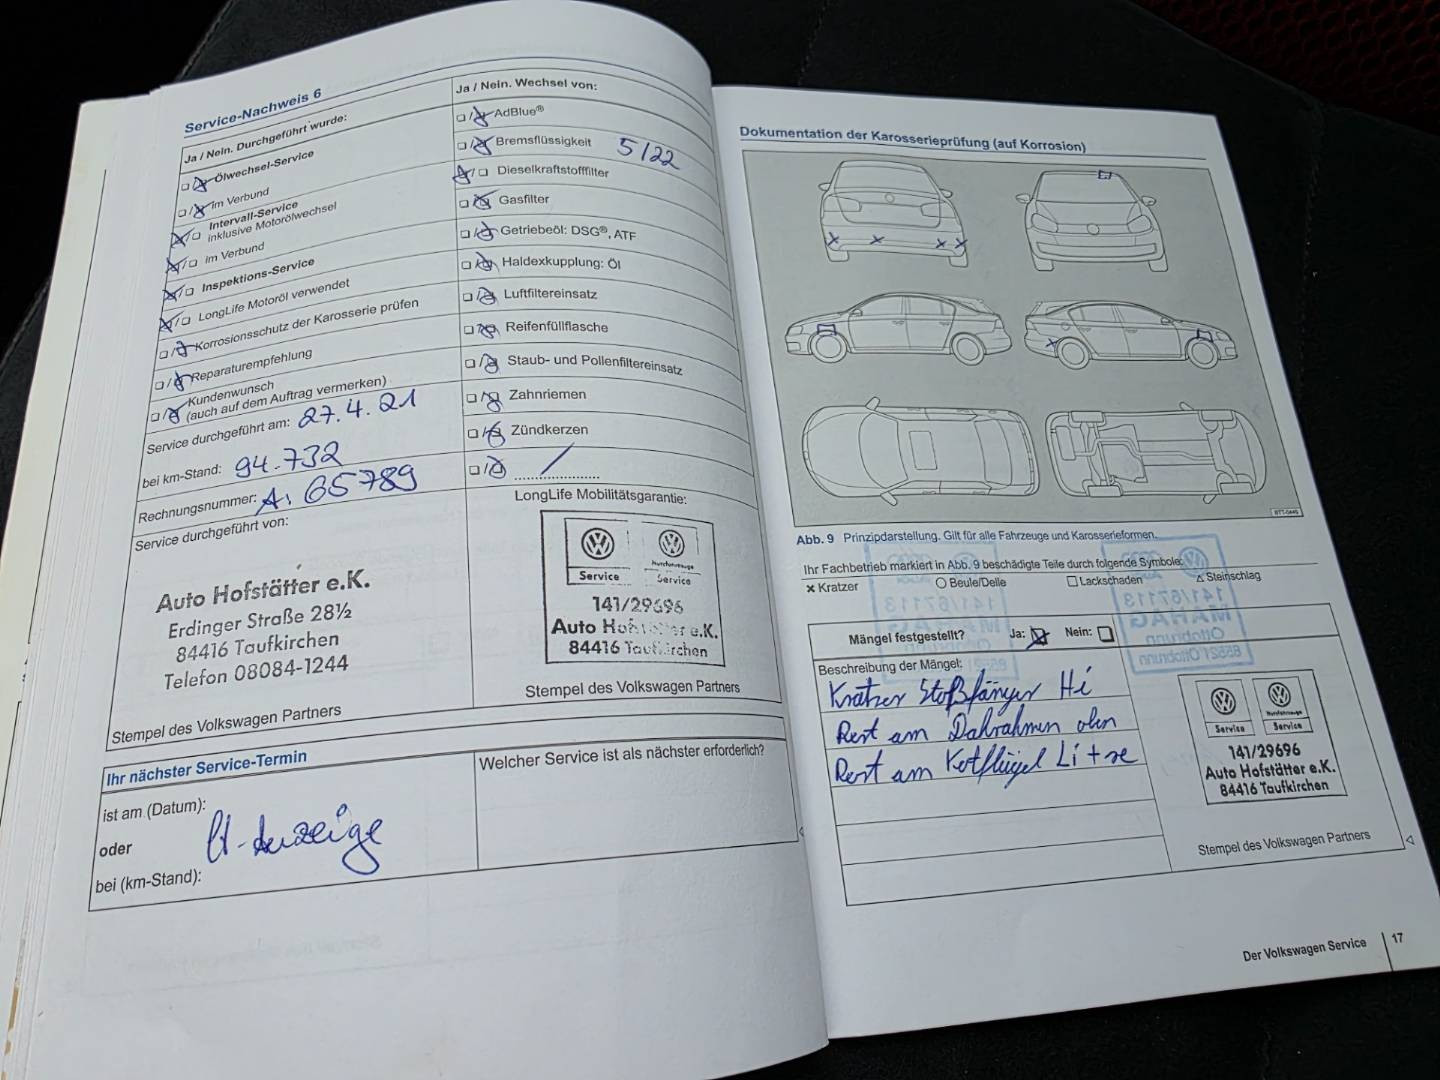 Service-Nachweis 6
Ja / Nein. Durchgeführt wurde:
Ölwechsel-Service
im Verbund
Intervall-Service
inklusive Motorölwechsel
im Verbund
Inspektions-Service
LongLife Motoröl verwendet
Korrosionsschutz der Karosserie prüfen
Reparaturempfehlung
Kundenwunsch
(auch auf dem Auftrag vermerken)
Service durchgeführt am: 27.4.21
bei km-Stand: 94.732
Rechnungsnummer: A. 65789
Service durchgeführt von:
Auto Hofstätter e.K.
Erdinger Straße 28½
84416 Taufkirchen
Telefon 08084-1244
Stempel des Volkswagen Partners
Ja / Nein. Wechsel von:
AdBlue®
Bremsflüssigkeit 5/22
Dieselkraftstofffilter
Gasfilter
Getriebeöl: DSG®, ATF
Haldexkupplung: Öl
Luftfiltereinsatz
Reifenfüllflasche
Staub- und Pollenfiltereinsatz
Zahnriemen
Zündkerzen
LongLife Mobilitätsgarantie:
Service
Nutzfahrzeuge
Service
141/29696
Auto Hofstätter e.K.
84416 Taufkirchen
Stempel des Volkswagen Partners
Ihr nächster Service-Termin
ist am (Datum):
oder
bei (km-Stand):
lt. Anzeige
Welcher Service ist als nächster erforderlich?
Dokumentation der Karosserieprüfung (auf Korrosion)
BTT-0445
Abb. 9 Prinzipdarstellung. Gilt für alle Fahrzeuge und Karosserieformen.
Ihr Fachbetrieb markiert in Abb. 9 beschädigte Teile durch folgende Symbole:
× Kratzer ○ Beule/Delle □ Lackschaden △ Steinschlag
Mängel festgestellt? Ja: Nein:
Beschreibung der Mängel:
Kratzer Stoßfänger Hi
Rost am Dachrahmen oben
Rost am Kotflügel Li + re
Service
Nutzfahrzeuge
Service
141/29696
Auto Hofstätter e.K.
84416 Taufkirchen
Stempel des Volkswagen Partners
Der Volkswagen Service 17